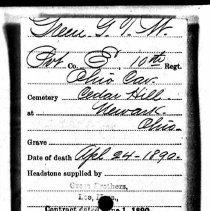 Green G. W.
Pvt Co. E, 10th Regt.
Ohio Cav.
Cemetery Cedar Hill.
at Newark.
Ohio.
Grave
Date of death Apl 24-1890.
Headstone supplied by
Brothers,
Lee,
Contract 1, 1890